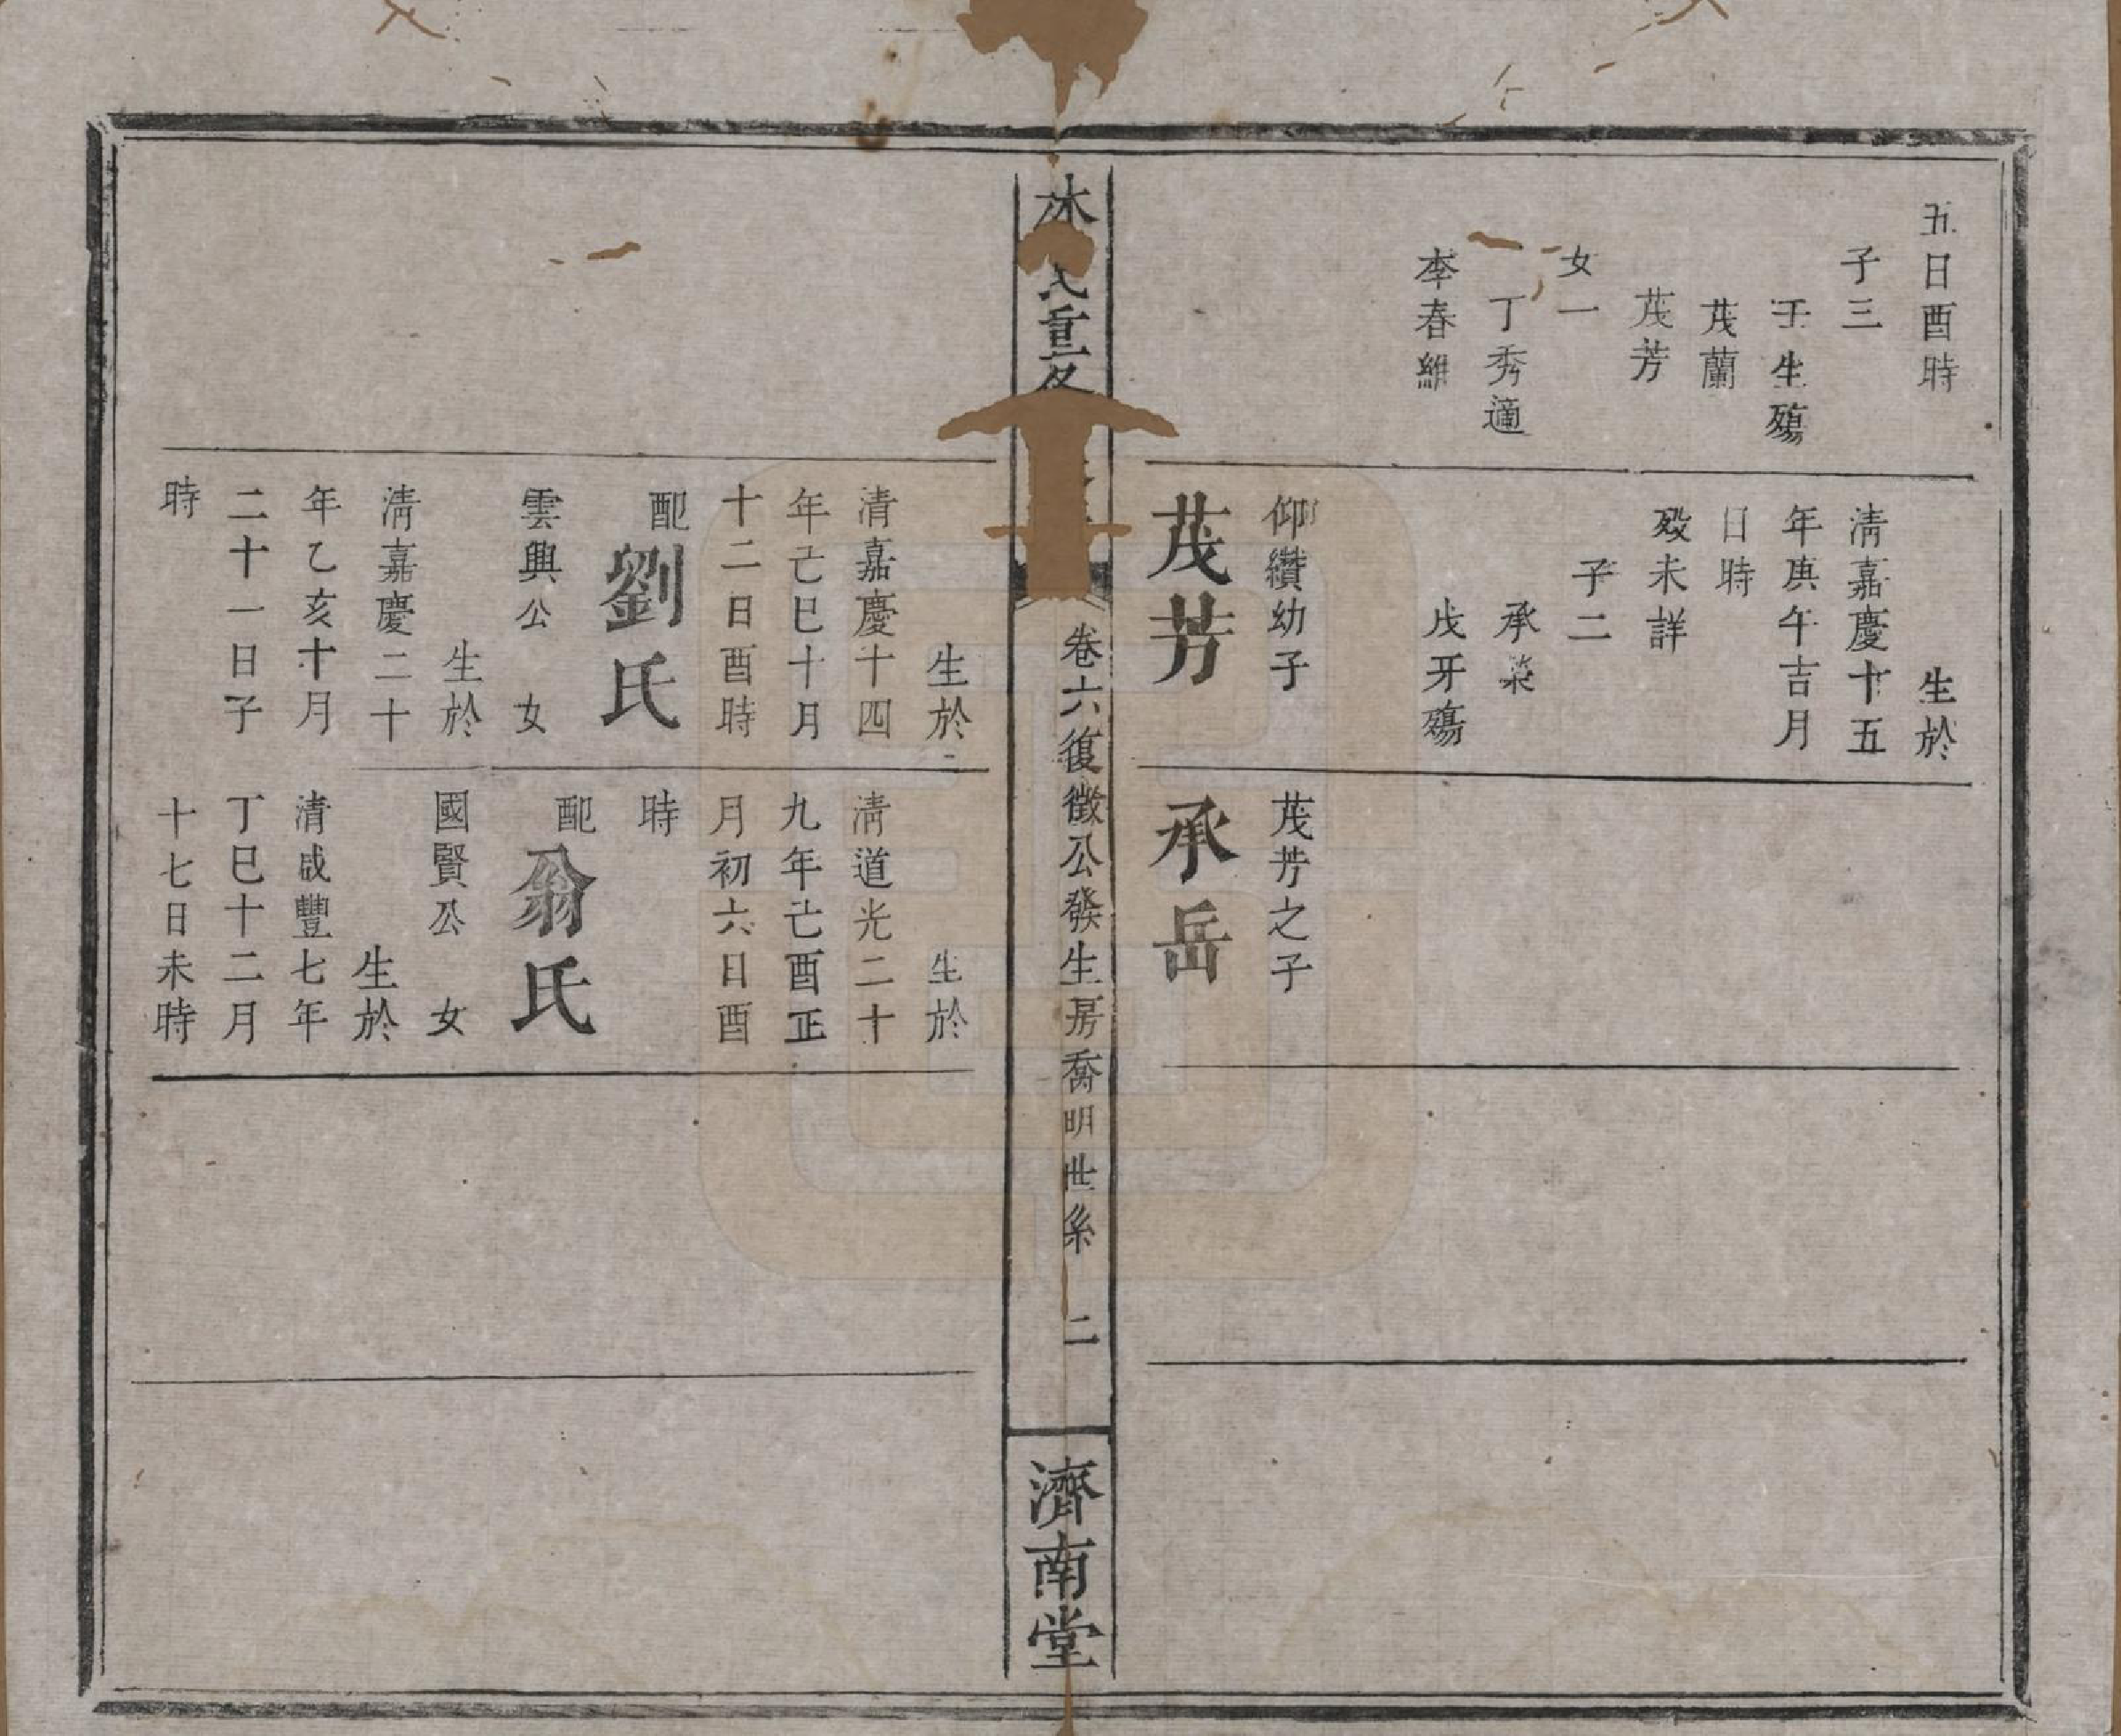 五日酉時
子三
壬生殤
茂蘭
茂芳
女一
丁秀適
李春維
生於
清嘉慶十五
年庚午吉月
日時
歿未詳
子二
承榮
戊牙殤
仰纘幼子
茂芳
茂芳之子
承岳
林氏重修
卷六復徵公發生房喬明世系 二
濟南堂
生於
清嘉慶十四
年己巳十月
十二日酉時
配
劉氏
雲興公 女
生於
清嘉慶二十
年乙亥十月
二十一日子
時
生於
清道光二十
九年乜酉正
月初六日酉
時
配
翁氏
國賢公 女
生於
清咸豐七年
丁巳十二月
十七日未時